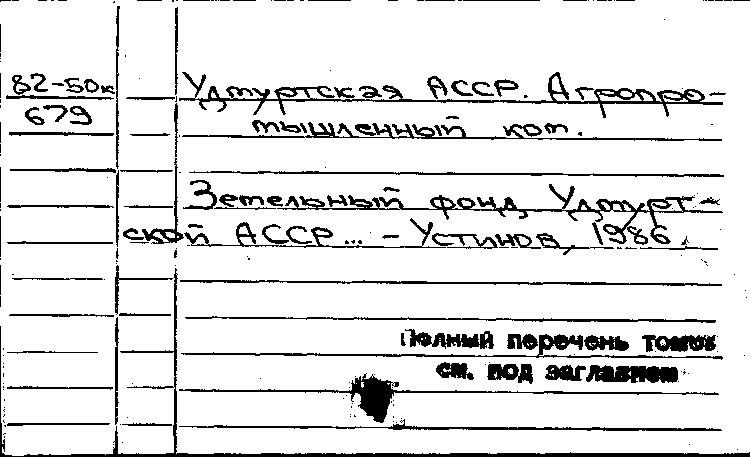 82-50к Удмуртская АССР. Агропро-
679 мышленный ком.
Земельный фонд Удмурт-
ской АССР... - Устинов, 1986.
Полный перечень томов
см. под заглавием